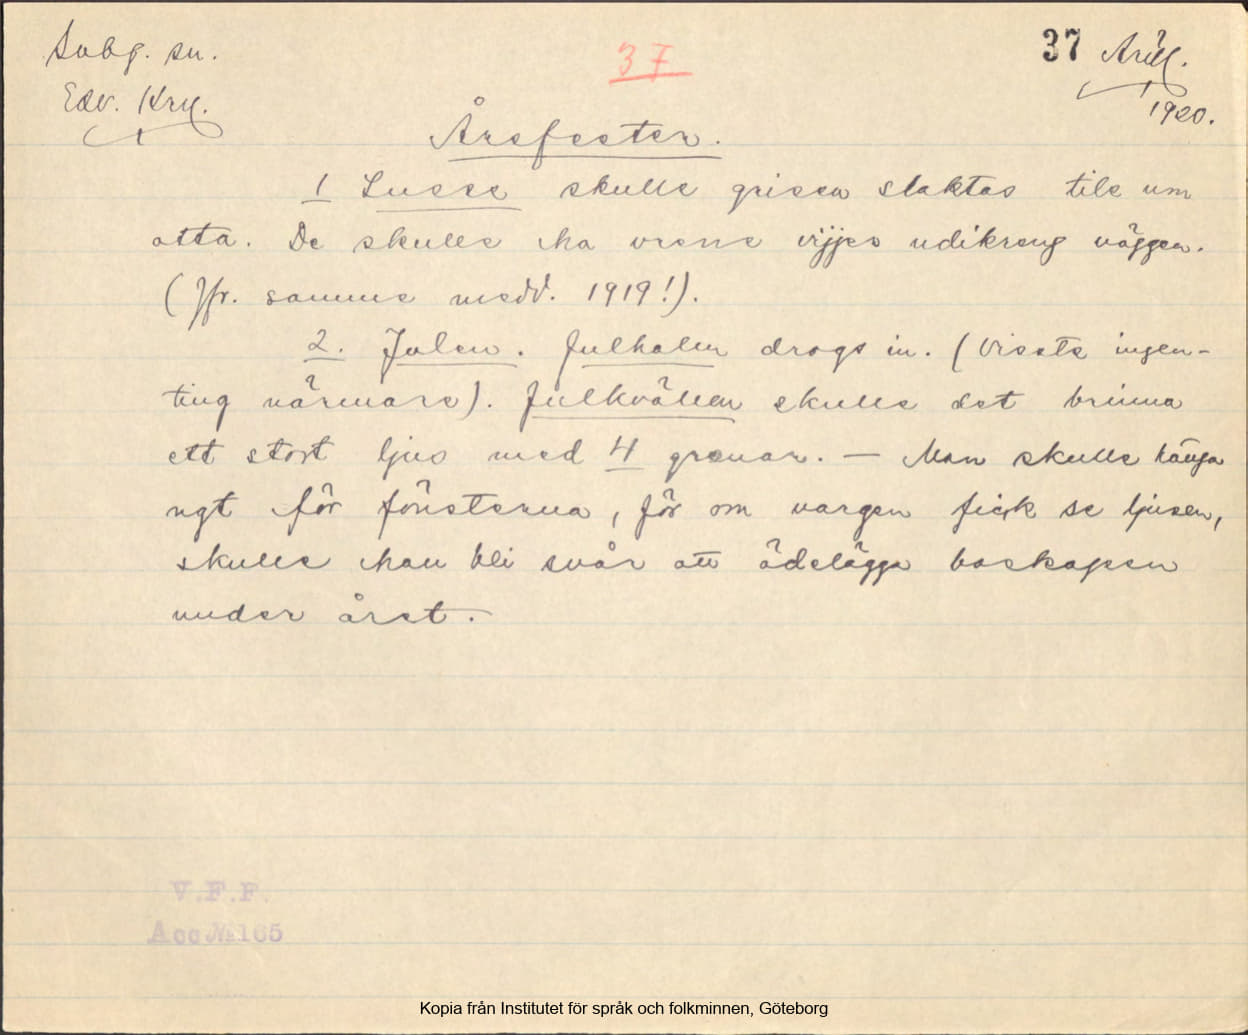 Svbg. sn.
37
37 Arill.
Edv. Kru.
1920.
Årsfester.
1 Lusse skulle grisen slaktas tils um
otta. De skulle ha vrene udikreng väggen.
(Jfr. samme medd. 1919!).
2. Julen. Julhalm drogs in. (Visste ingen-
ting närmare). Julkvällen skulle det brinna
ett stort ljus med 4 grenar. — Man skulle hänga
ngt för fönsterna, för om vargen fick se ljusen,
skulle han bli svår att ödelägga boskapen
under året.
V.F.F.
Acc № 165
Kopia från Institutet för språk och folkminnen, Göteborg